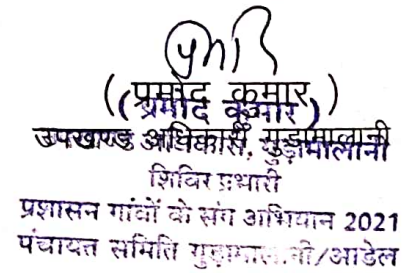 (प्रमोद कुमार)
उपखण्ड अधिकारी, गुड़ामालानी
शिविर प्रभारी
प्रशासन गांवों के संग अभियान 2021
पंचायत समिति गुड़ामालानी/आडेल